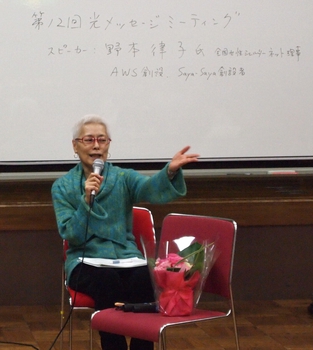 第12回光メッセージミーティング
スピーカー：野本律子氏 全国女性シェルターネット理事
AWS創設、Saya-Saya創設者